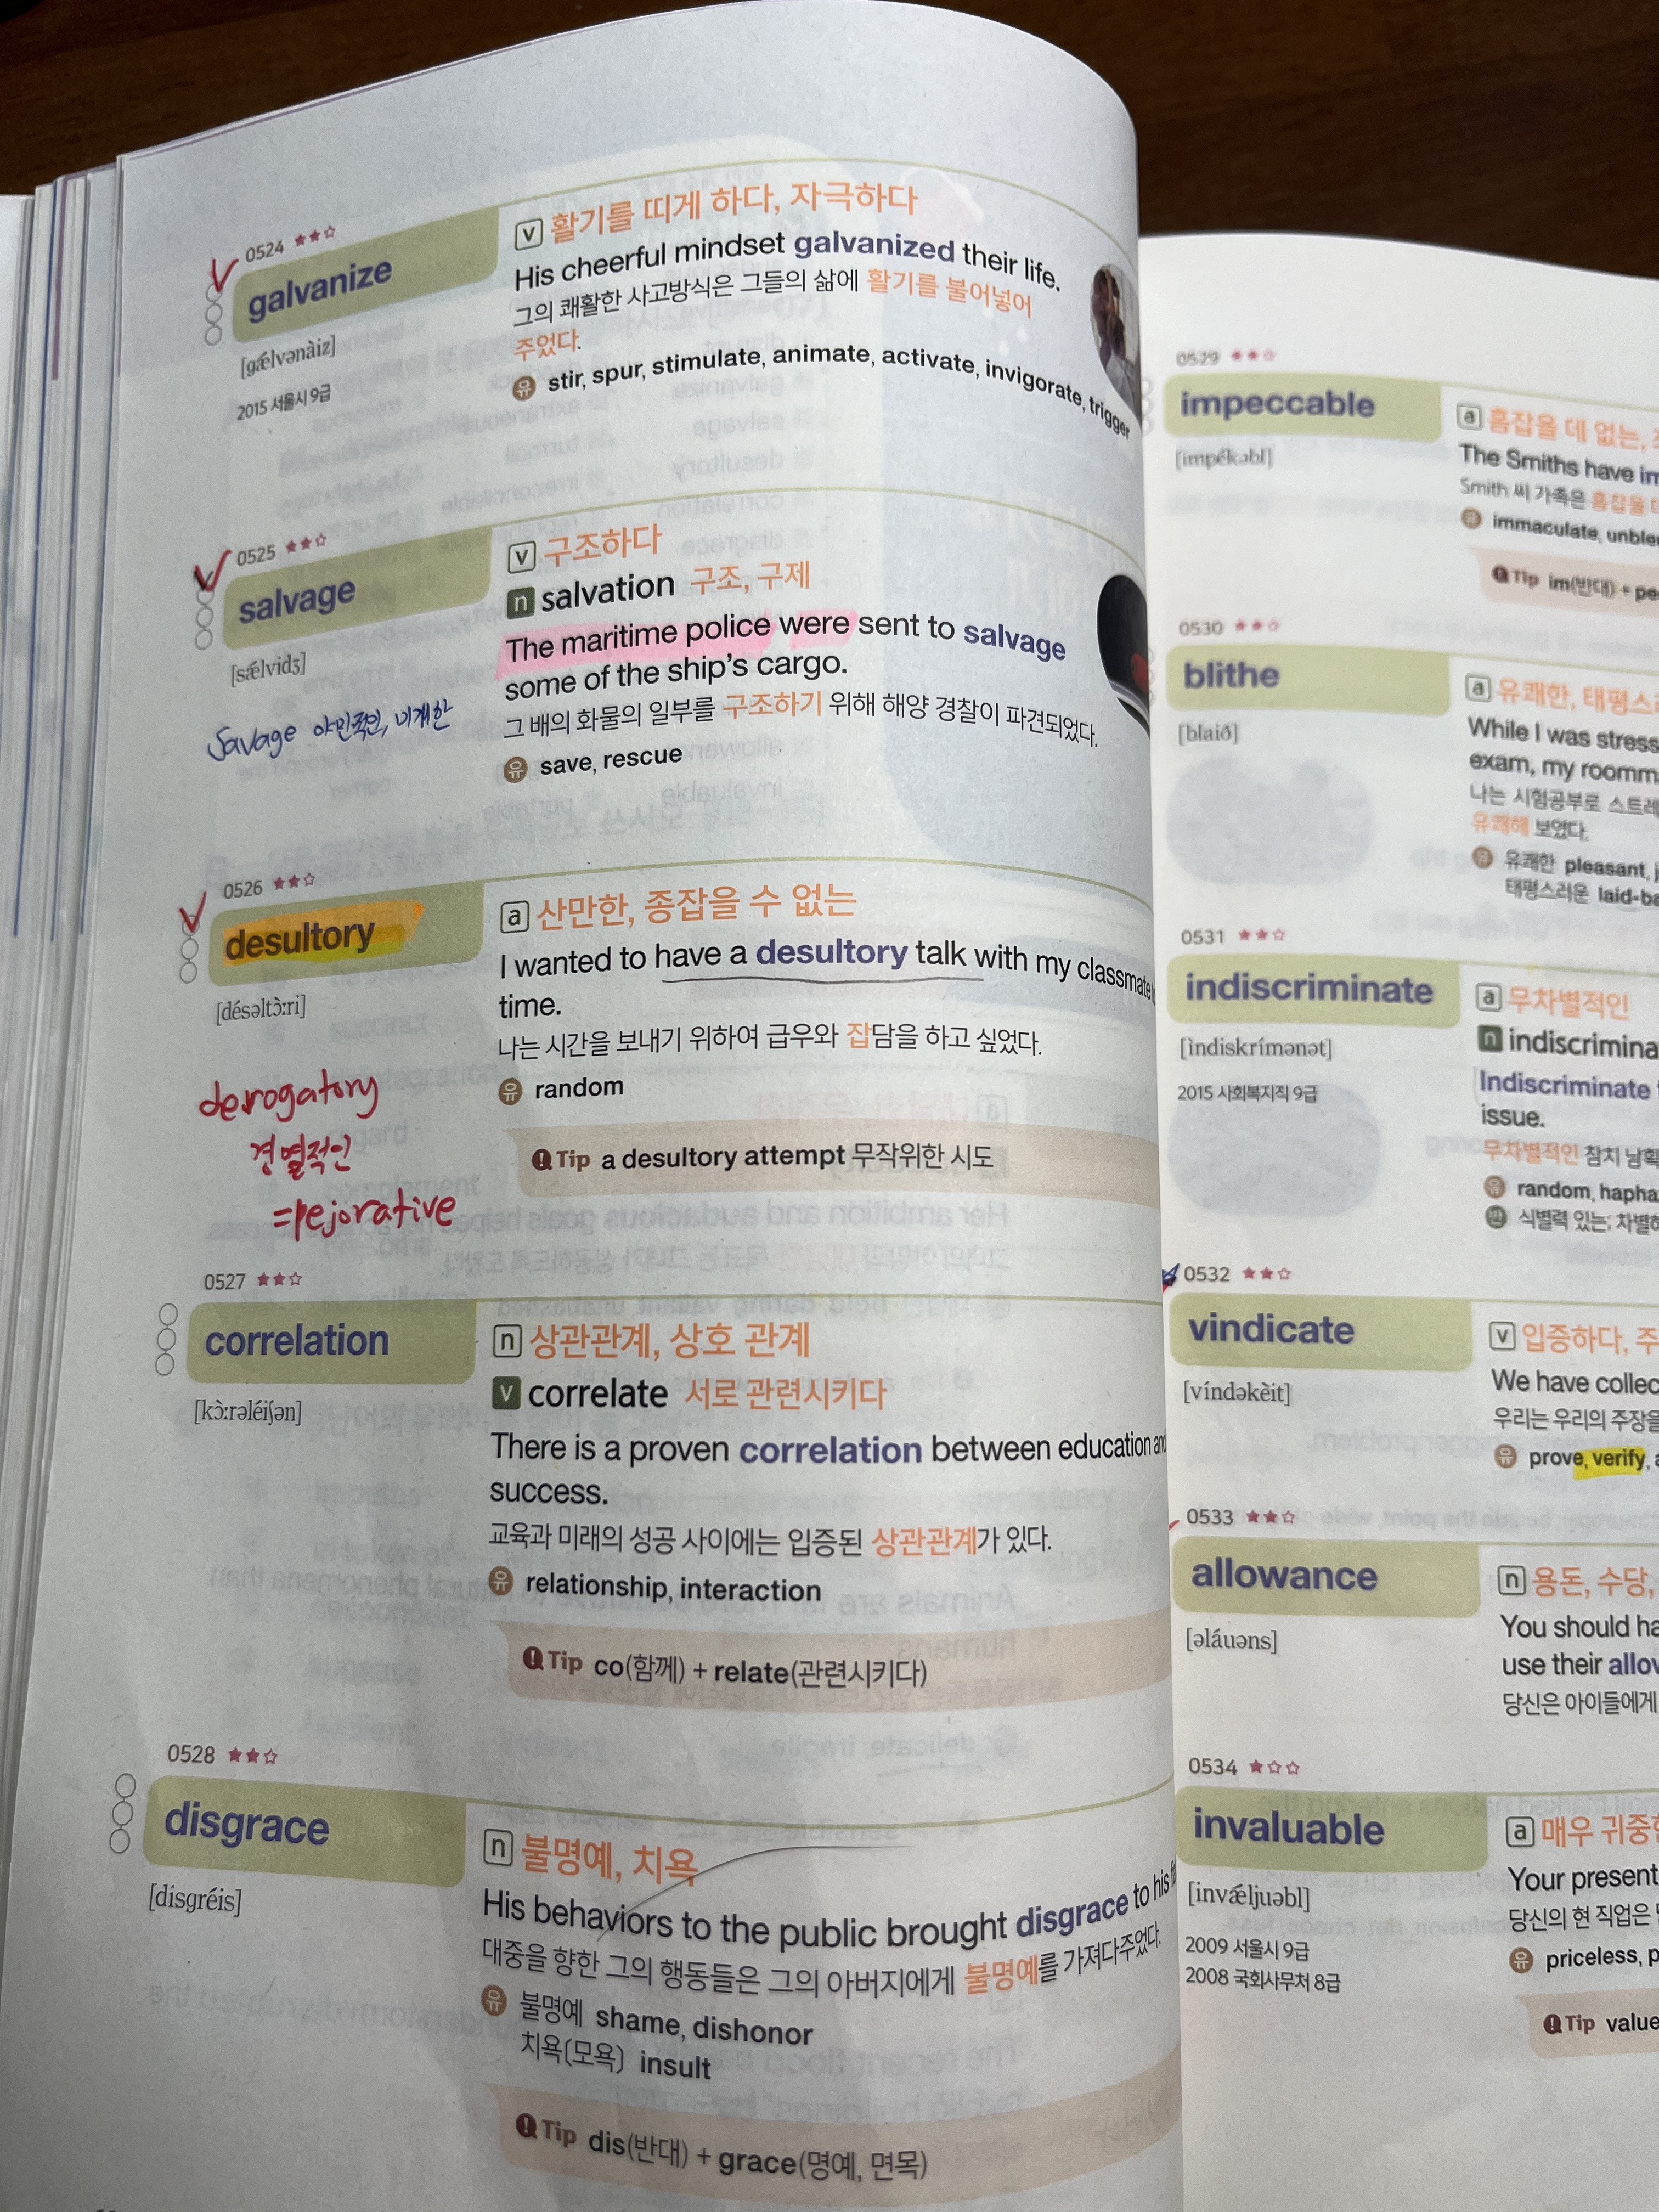 0524 ★★☆
galvanize
[gǽlvənàiz]
2015 서울시 9급
v 활기를 띠게 하다, 자극하다
His cheerful mindset galvanized their life.
그의 쾌활한 사고방식은 그들의 삶에 활기를 불어넣어
주었다.
유 stir, spur, stimulate, animate, activate, invigorate, trigger
0525 ★★☆
salvage
[sǽlvidʒ]
savage 야만적인, 미개한
v 구조하다
n salvation 구조, 구제
The maritime police were sent to salvage
some of the ship's cargo.
그 배의 화물의 일부를 구조하기 위해 해양 경찰이 파견되었다.
유 save, rescue
0526 ★★☆
desultory
[désəltɔ̀ːri]
derogatory
경멸적인
=pejorative
a 산만한, 종잡을 수 없는
I wanted to have a desultory talk with my classmate
time.
나는 시간을 보내기 위하여 급우와 잡담을 하고 싶었다.
유 random
Tip a desultory attempt 무작위한 시도
0527 ★★☆
correlation
[kɔ̀ːrəléiʃən]
n 상관관계, 상호 관계
v correlate 서로 관련시키다
There is a proven correlation between education and
success.
교육과 미래의 성공 사이에는 입증된 상관관계가 있다.
유 relationship, interaction
Tip co(함께) + relate(관련시키다)
0528 ★★☆
disgrace
[disgréis]
n 불명예, 치욕
His behaviors to the public brought disgrace to his
대중을 향한 그의 행동들은 그의 아버지에게 불명예를 가져다주었다.
유 불명예 shame, dishonor
치욕(모욕) insult
Tip dis(반대) + grace(명예, 면목)
0529 ★★☆
impeccable
[impékəbl]
a 흠잡을 데 없는,
The Smiths have
Smith 씨 가족은 흠잡을
유 immaculate,
Tip im(반대) +
0530 ★★☆
blithe
[blaið]
a 유쾌한,
While I was
exam, my
나는 시험공부로
유쾌해 보였다.
유 유쾌한 pleasant,
태평스러운
0531 ★★☆
indiscriminate
[ìndiskrímənət]
2015 사회복지직 9급
a 무차별적인
n
Indiscriminate
issue.
무차별적인 참치
유 random,
반 식별력 있는;
0532 ★★☆
vindicate
[víndəkèit]
v 입증하다,
We have
우리는 우리의
유 prove, verify,
0533 ★★☆
allowance
[əláuəns]
n 용돈, 수당,
You should
use their
당신은 아이들에게
0534 ★☆☆
invaluable
[invǽljuəbl]
2009 서울시 9급
2008 국회사무처 8급
a 매우
Your present
당신의 현 직업은
유 priceless,
Tip value